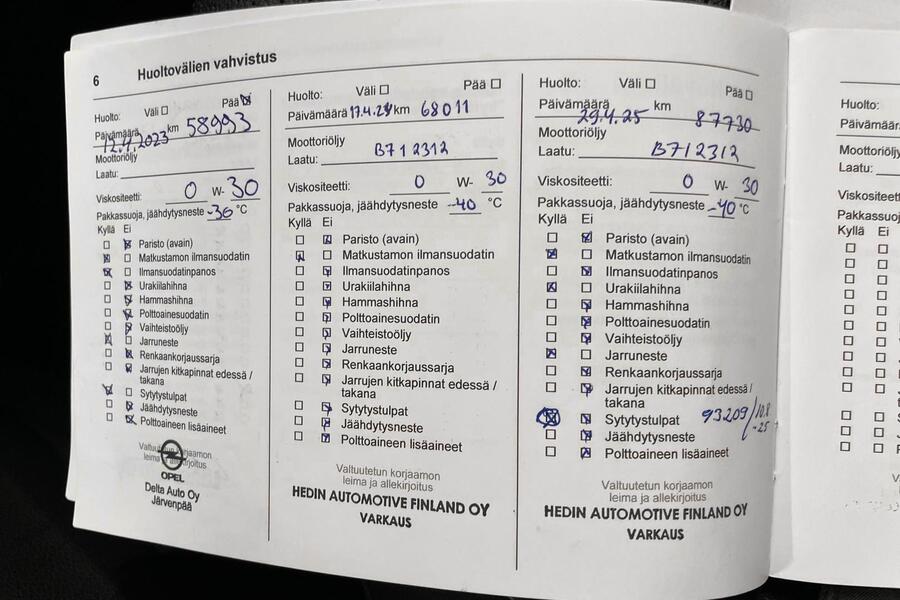 6 Huoltovälien vahvistus
Huolto: Väli ☐ Pää ☒
Päivämäärä 12.4.2023 km 58993
Moottoriöljy
Laatu:
Viskositeetti: 0 W- 30
Pakkassuoja, jäähdytysneste -36 °C
Kyllä Ei
☐ ☒ Paristo (avain)
☒ ☐ Matkustamon ilmansuodatin
☒ ☐ Ilmansuodatinpanos
☐ ☒ Urakiilahihna
☐ ☒ Hammashihna
☐ ☒ Polttoainesuodatin
☐ ☒ Vaihteistoöljy
☒ ☐ Jarruneste
☐ ☒ Renkaankorjaussarja
☐ ☒ Jarrujen kitkapinnat edessä /
takana
☒ ☐ Sytytystulpat
☐ ☒ Jäähdytysneste
☐ ☒ Polttoaineen lisäaineet
Valtuutetun korjaamon
leima ja allekirjoitus
OPEL
Delta Auto Oy
Järvenpää
Huolto: Väli ☐ Pää ☐
Päivämäärä 17.4.24 km 68011
Moottoriöljy
Laatu: B712312
Viskositeetti: 0 W- 30
Pakkassuoja, jäähdytysneste -40 °C
Kyllä Ei
☐ ☒ Paristo (avain)
☒ ☐ Matkustamon ilmansuodatin
☐ ☒ Ilmansuodatinpanos
☐ ☒ Urakiilahihna
☐ ☒ Hammashihna
☐ ☒ Polttoainesuodatin
☐ ☒ Vaihteistoöljy
☐ ☒ Jarruneste
☐ ☒ Renkaankorjaussarja
☐ ☒ Jarrujen kitkapinnat edessä /
takana
☐ ☒ Sytytystulpat
☐ ☒ Jäähdytysneste
☐ ☒ Polttoaineen lisäaineet
Valtuutetun korjaamon
leima ja allekirjoitus
HEDIN AUTOMOTIVE FINLAND OY
VARKAUS
Huolto: Väli ☐ Pää ☐
Päivämäärä 29.4.25 km 87730
Moottoriöljy
Laatu: B712312
Viskositeetti: 0 W- 30
Pakkassuoja, jäähdytysneste -40 °C
Kyllä Ei
☐ ☒ Paristo (avain)
☒ ☐ Matkustamon ilmansuodatin
☐ ☒ Ilmansuodatinpanos
☒ ☐ Urakiilahihna
☐ ☒ Hammashihna
☐ ☒ Polttoainesuodatin
☐ ☒ Vaihteistoöljy
☒ ☐ Jarruneste
☐ ☒ Renkaankorjaussarja
☐ ☒ Jarrujen kitkapinnat edessä /
takana
☒ ☒ Sytytystulpat 93209/10.8
-25
☐ ☒ Jäähdytysneste
☐ ☒ Polttoaineen lisäaineet
Valtuutetun korjaamon
leima ja allekirjoitus
HEDIN AUTOMOTIVE FINLAND OY
VARKAUS
Huolto:
Moottoriöljy
Laatu:
Kyllä Ei